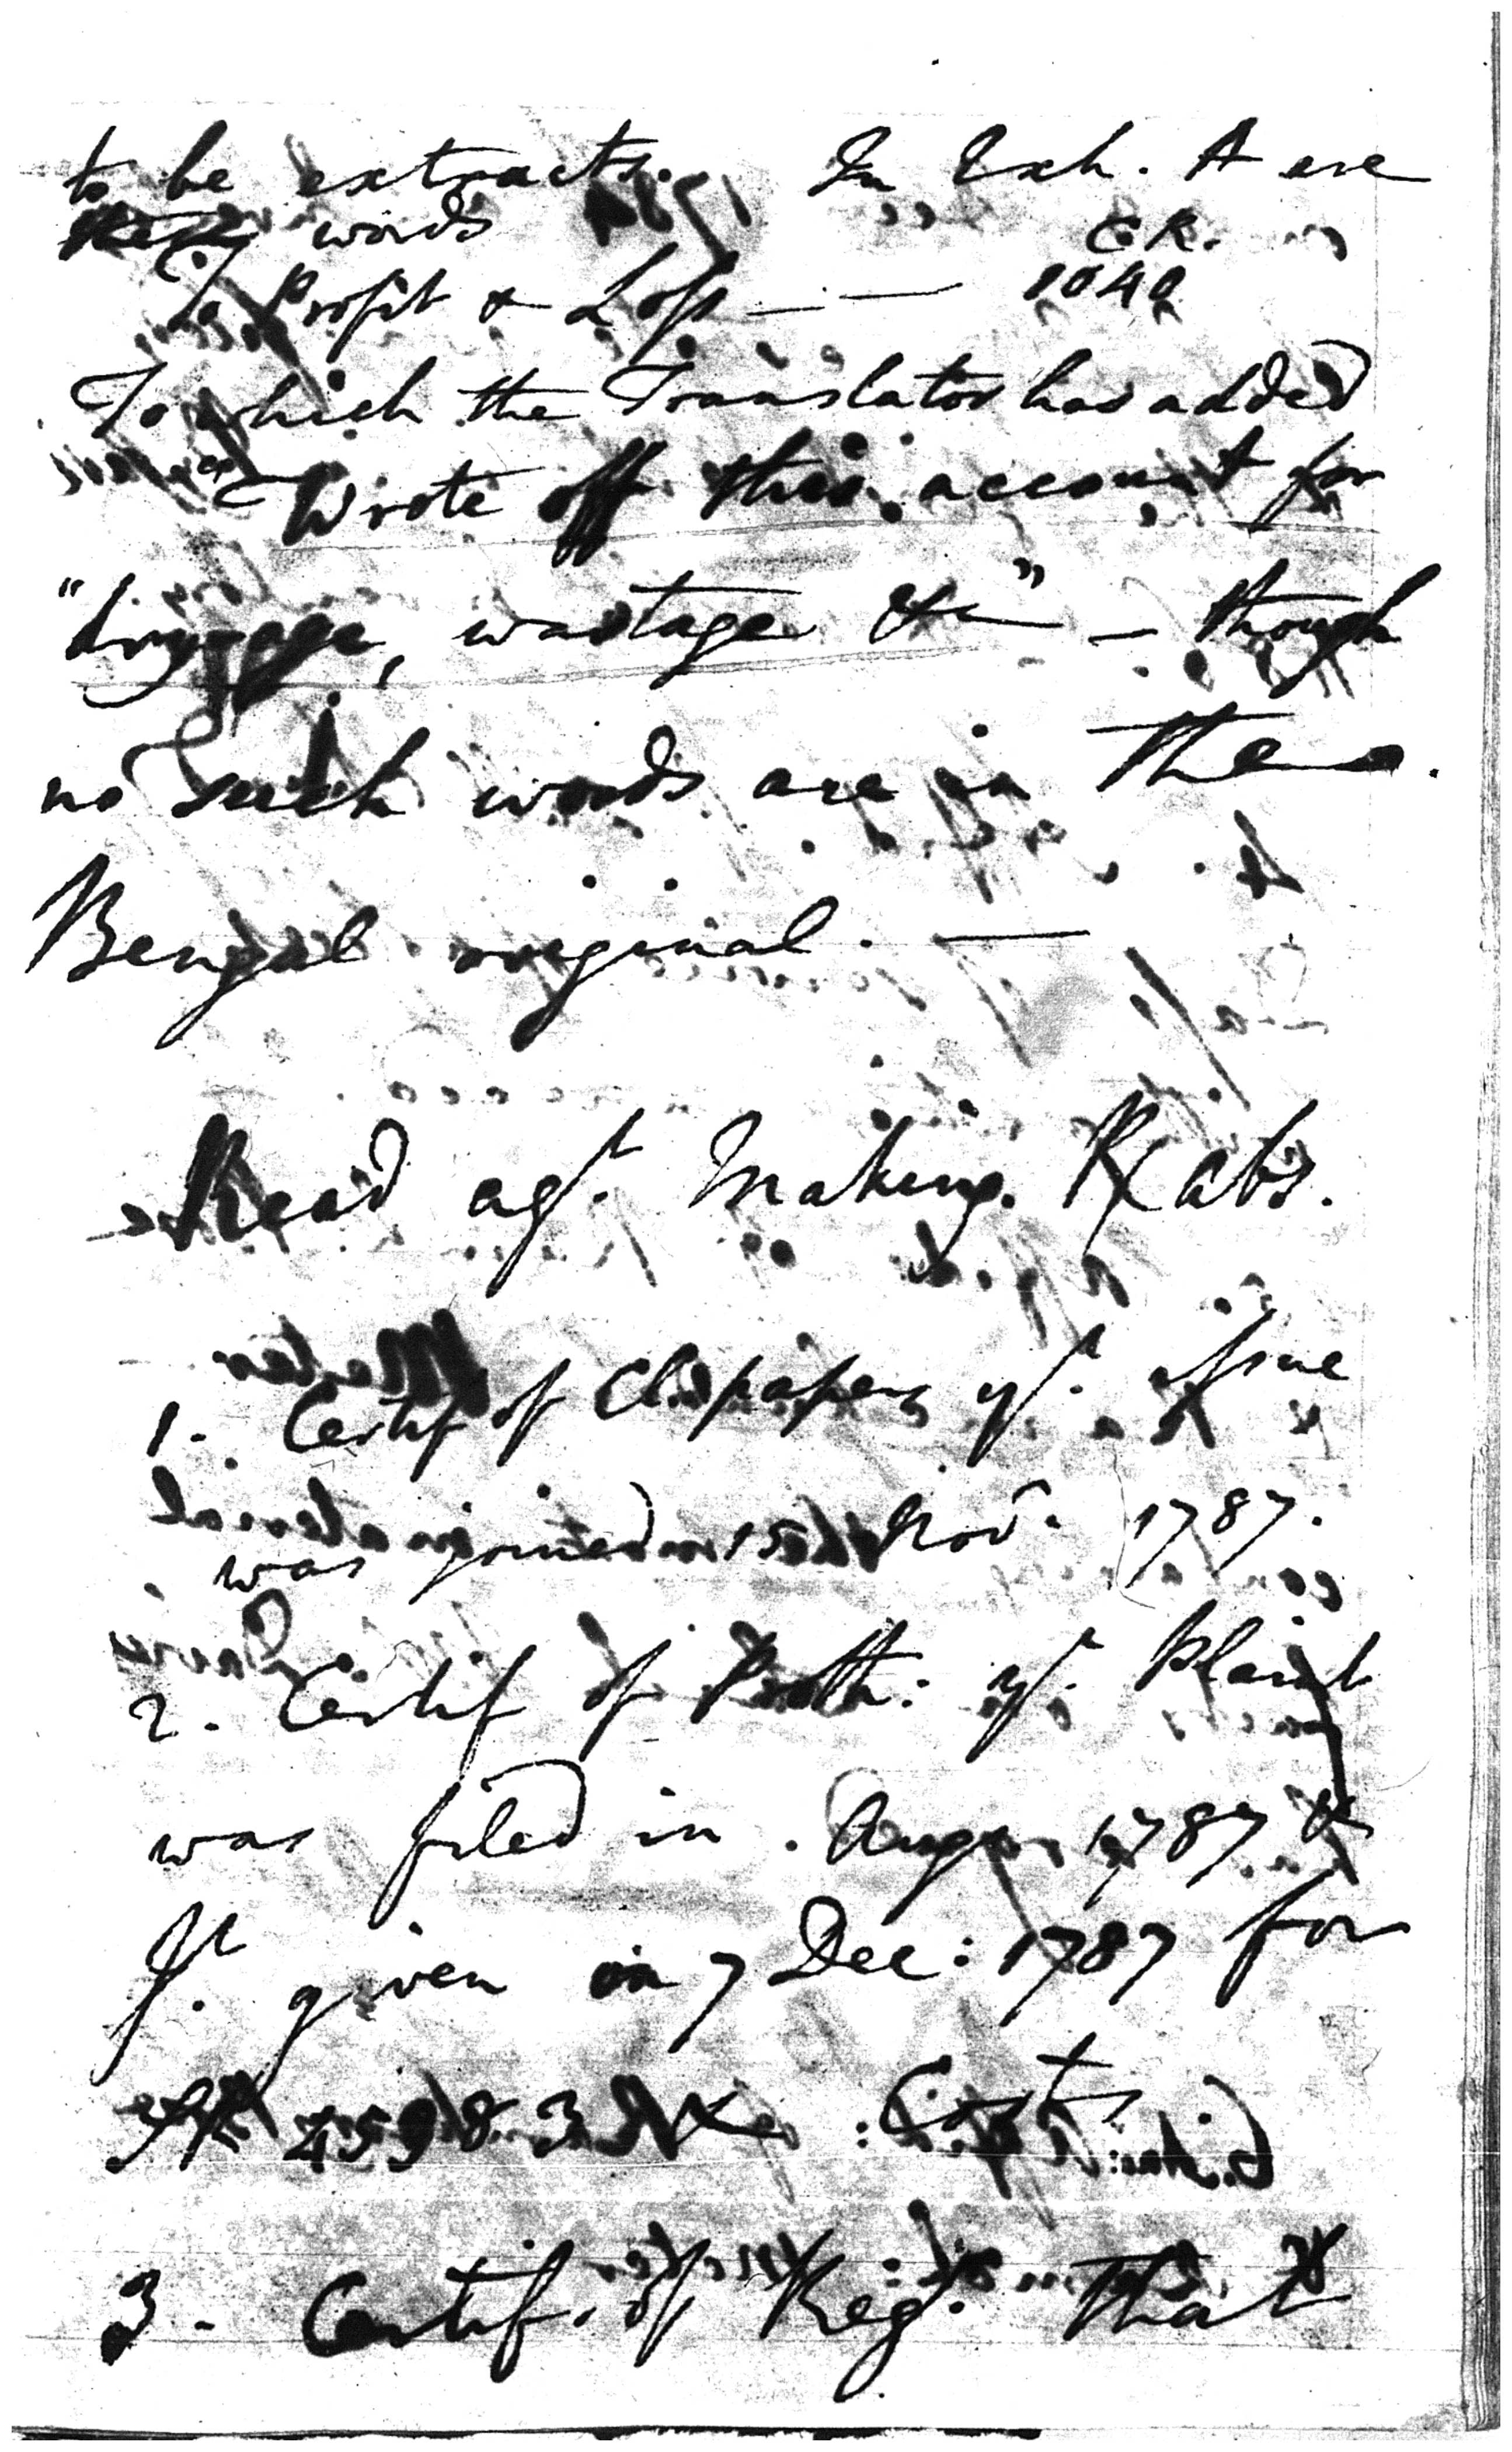 to be extracts. In Exh. A are
these words C.R.
To Profit & Loss — — 1040
To which the Translator has added
"Wrote off this account for
"dryage, wastage &c" — though
no such words are in the
Bengal original. —
Read agt. Making Rect abs.
1. Certif of Cl. papers yt. issue
was joined 15 Nov. 1787.
2. Certif of Proth: yt. plaint
was filed in Augt 1787 &
Jt. given on 7 Dec: 1787 for
SR 4598.3 & Costs
3. Certif. of Reg. that